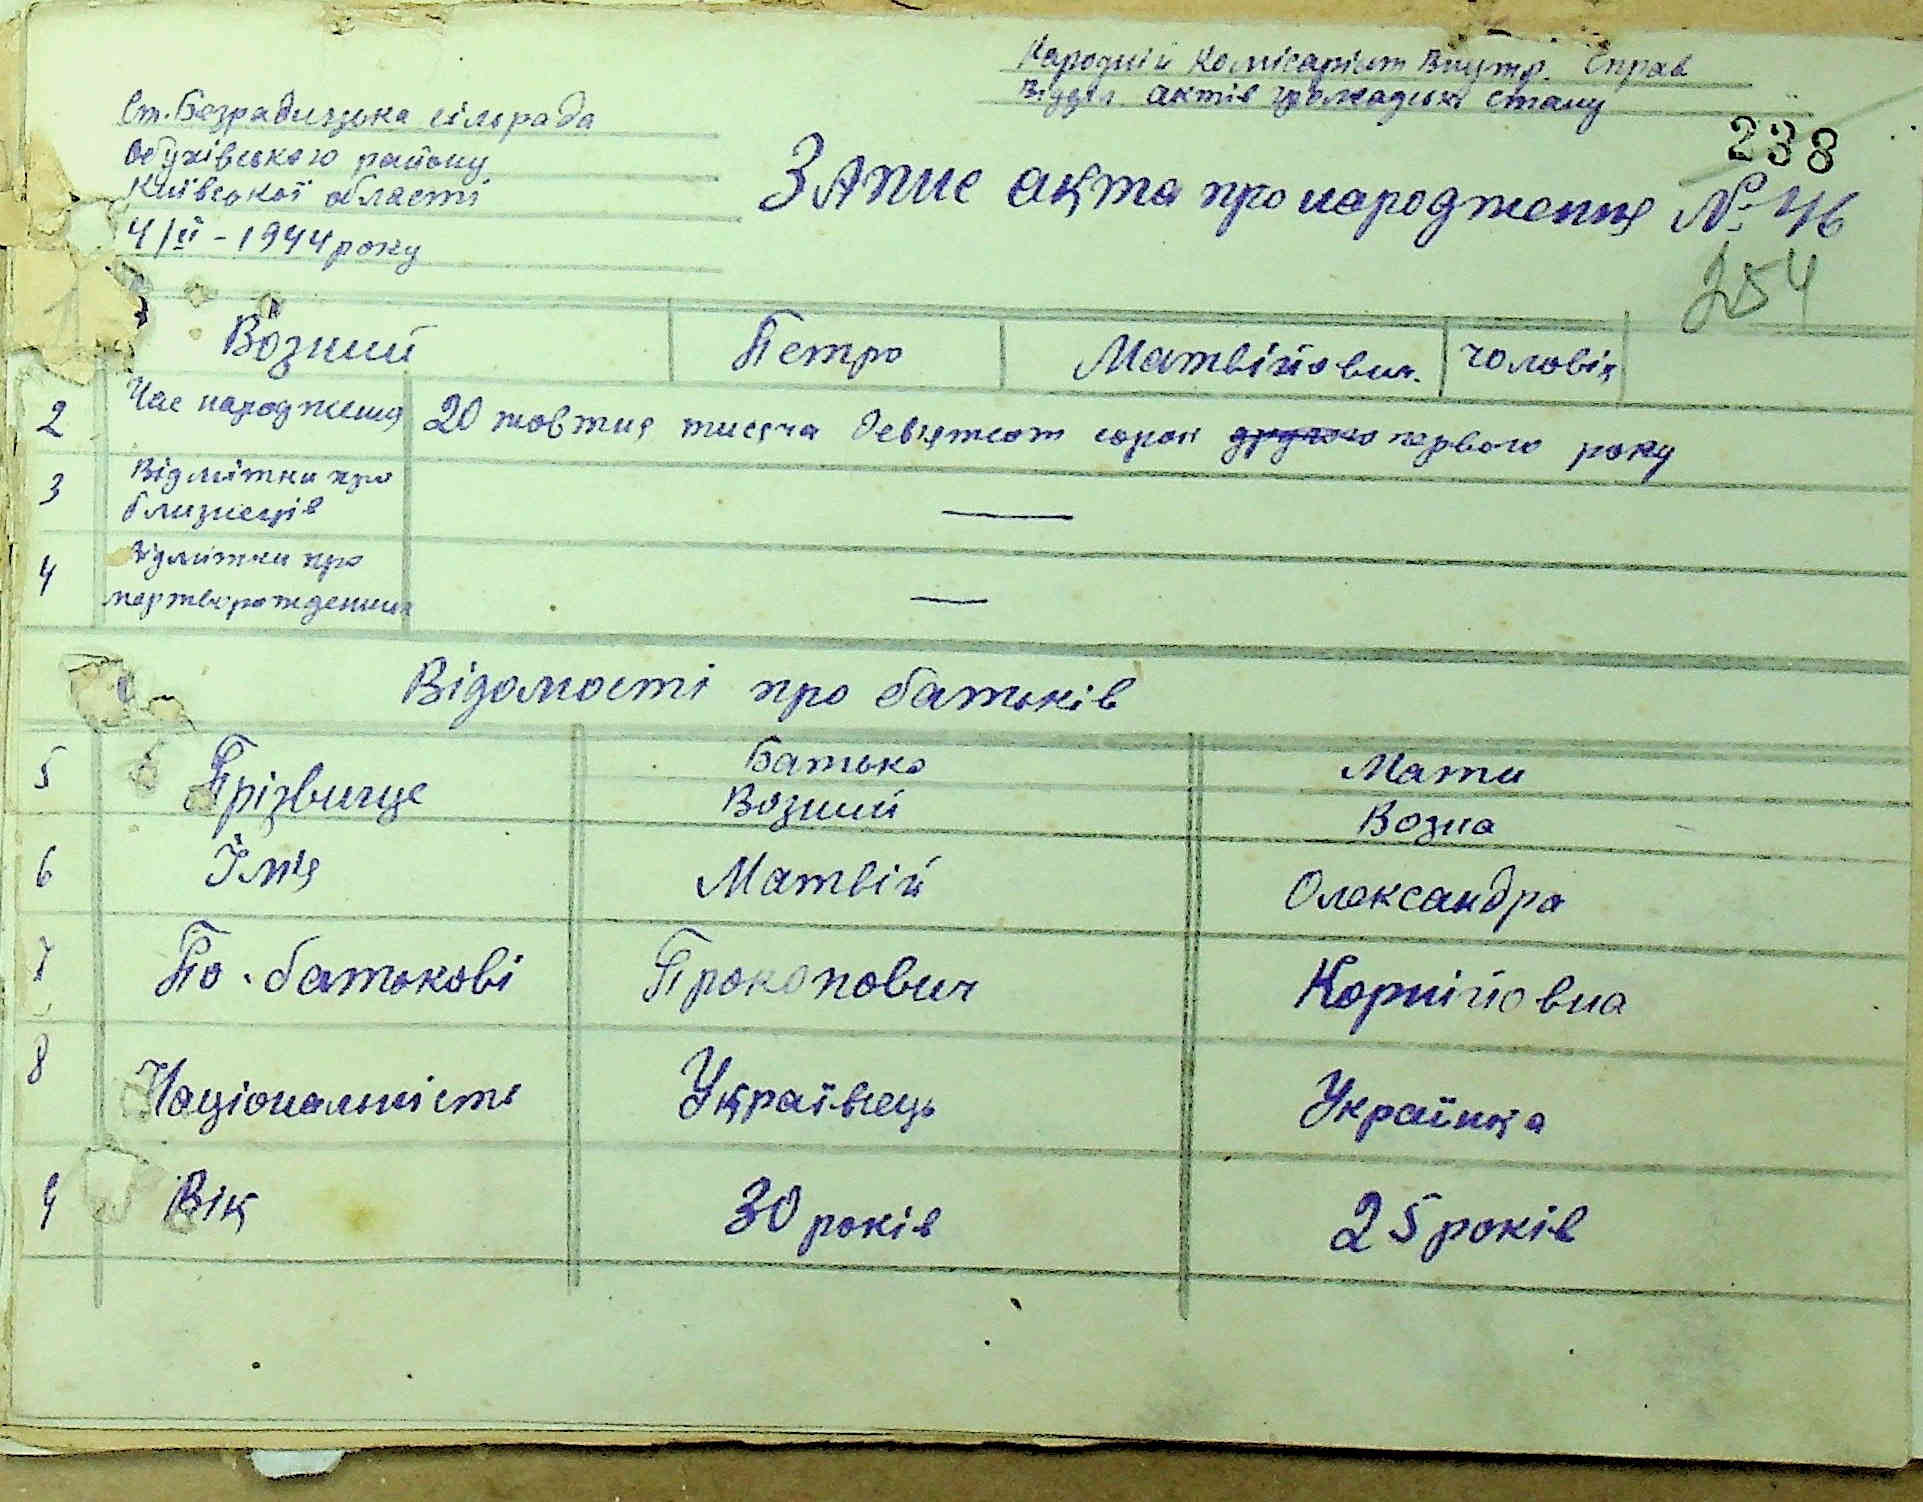 Народній Комісаріят Внутр. Справ
Відділ актів громадськ стану
Ст. Безрадицька сільрада
Обухівського району
Київської області
4/ІІ - 1944 року
238
Запис акта про народження № 46
254
Возний Петро Матвійович. чоловік
2 Час народження 20 жовтня тисяча девятсот сорок другого первого року
3 Відмітки про
близнеців —
4 Відмітки про
мертворожденних —
Відомості про батьків
Батько Мати
5 Прізвище Возний Возна
6 Їм'я Матвій Олександра
7 По-батькові Прокопович Корнійовна
8 Національність Українець Українка
9 Вік 30 років 25 років